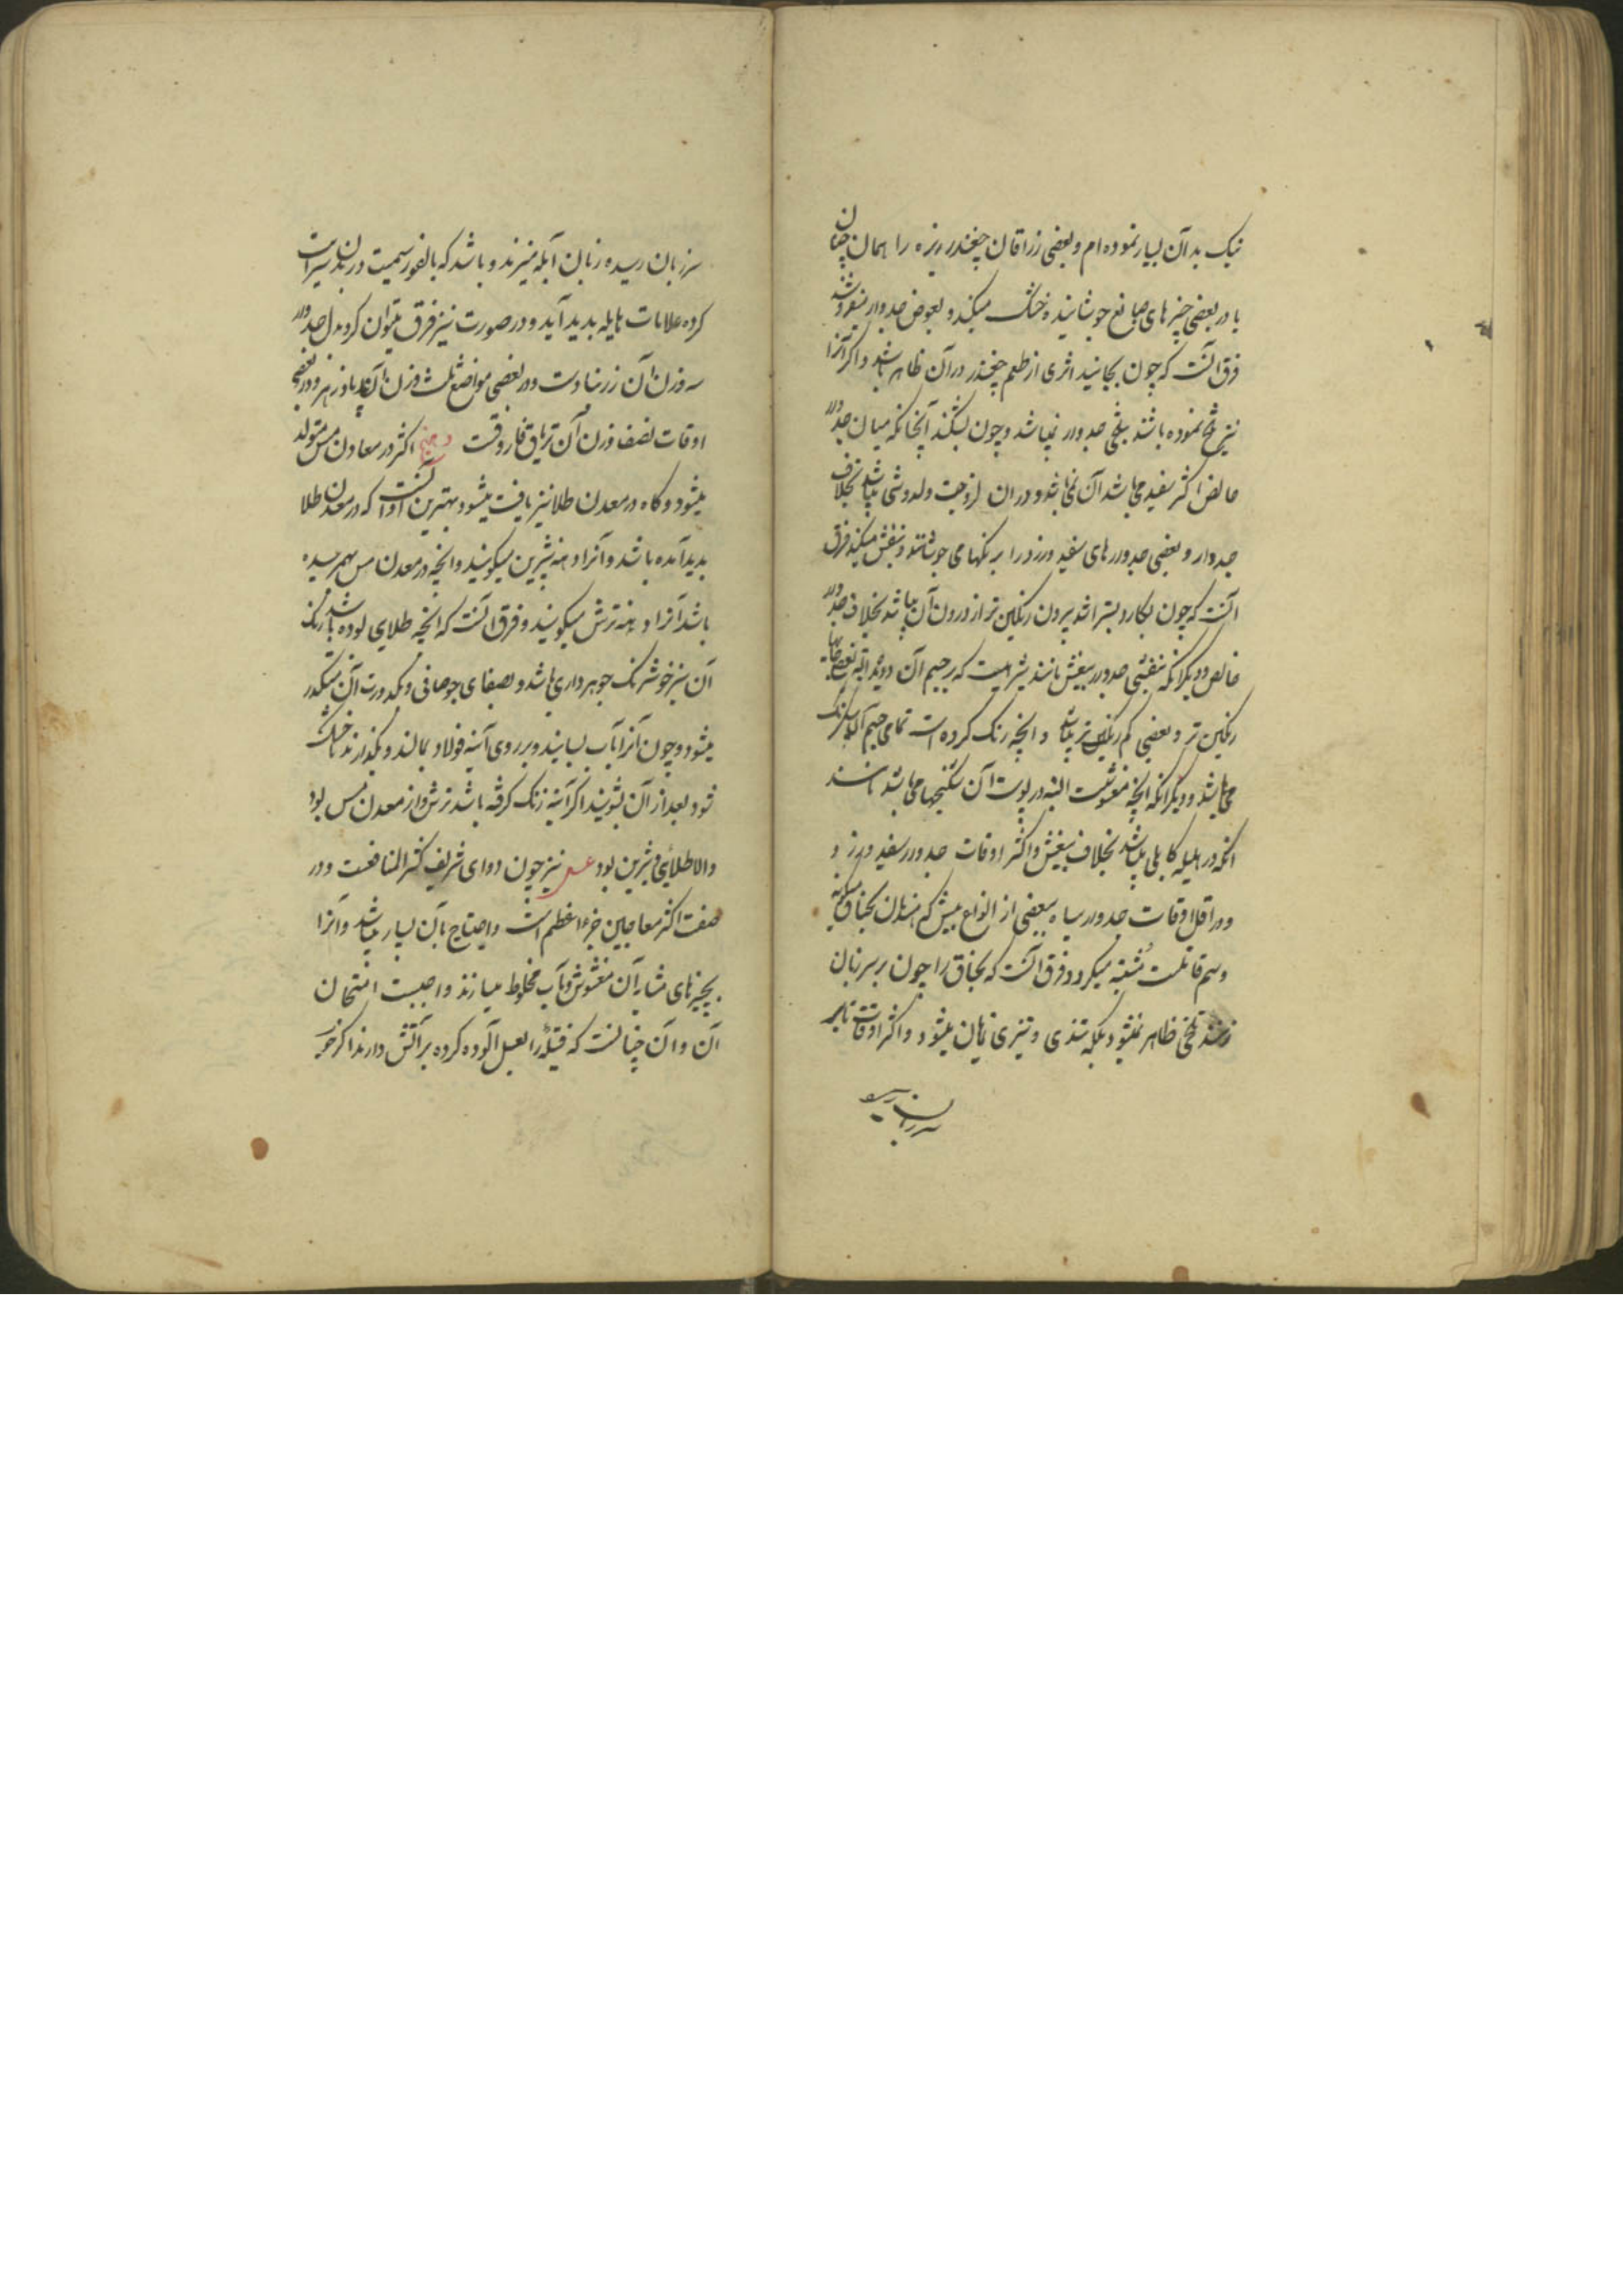 نیک بد آن بسیار نموده ام و بعضی زراقان چغندر ریزه را همان چنان
یا در بعضی چیزهای صابغ جوشانیده خشک میکند و بعوض جدوار میفروشند
فرق آنست که چون بخایند اثری از طعم چغندر در آن ظاهر باشد و اگر آنرا
نیز تلخ نموده باشند بتلخی جدوار نمیباشد و چون بشکنند آنچنانکه میان جدوار
خالص اکثر سفید می باشد آن نمی باشد و در آن لزوجت و میباشد بخلاف
جدوار و بعضی جدوارهای سفید و زرد را برنگها می جوشانند و بنفش میکنند فرق
آنست که چون بکارد بتراشند بیرون رنگین تر از درون آن میباشد بخلاف جدوار
خالص و دیگر آنکه بنفشی جدوار بنفش مانند است که بر جسم آن دویده البته بعضی جاها
رنگین تر و بعضی کم رنگین تر میباشد و آنچه رنگ کرده است تمامی جسم آن یکرنگ
می باشد و دیگر آنکه آنچه مغشوشست البته در پوست آن شکنجها می باشد مانند
آنکه در هلیله کابلی میباشد بخلاف بنفش و اکثر اوقات جدوار سفید و زرد و
و در اقل اوقات جدوار سیاه ببعضی از انواع بیش که
و سم قاتلست مشتبه میگردد و فرق آنست که را چون بر سر زبان
زنند تلخی ظاهر نمیشود بلکه تندی و تیزی نمایان میشود و اکثر اوقات تا بر
سر زبان رسیده
سر زبان رسیده زبان آبله میزند و باشد که بالفور سمیت در بدن سرایت
کرده علامات هایله پدید آید و در صورت نیز فرق میتوان کرد بدل جدوار
سه وزن آن زرنباد است و در بعضی مواضع ثلث وزن آن پادزهر و در بعضی
اوقات نصف وزن آن تریاق فاروقست دهنه اکثر در معادن مس متولد
میشود و گاه در معدن طلا نیز یافت میشود و بهترین آن آنست که در معدن طلا
پدید آمده باشد و آنرا دهنه شیرین میگویند و آنچه در معدن مس بهم رسیده
باشد آنرا دهنه ترش میگویند و فرق آنست که آنچه طلایی بوده باشد رنگ
آن سبز خوشرنگ جوهرداری باشد و بصفای جو صافی و بکدورت آن متکدر
میشود و چون آنرا بآب بسایند و بر روی آینه فولاد بمالند و بگذارند تا خشک
شود بعد از آن بشویند اگر آینه زنگ گرفته باشد ترش و از معدن مس بود
والا طلایی و شیرین بود عسل نیز چون دوای شریف کثیر المنافعست و در
صفت اکثر معاجین جزء اعظم است و احتیاج بآن بسیار میباشد و آنرا
بچیزهای مشابه آن مغشوش و بآب مخلوط میسازند واجبست امتحان
آن و آن چنانست که فتیله را بعسل آلوده کرده بر آتش دارند اگر